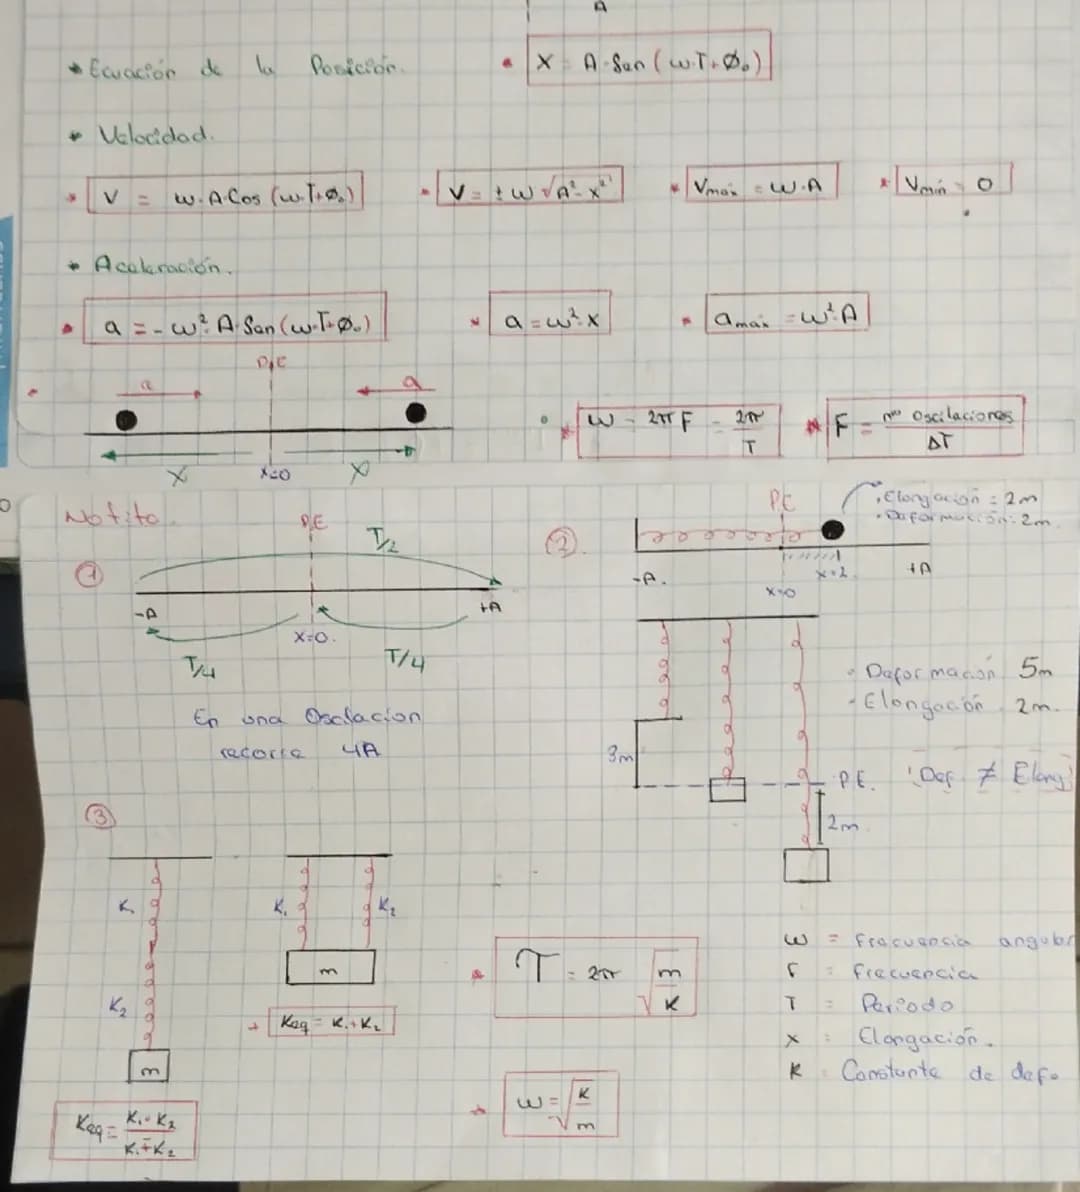 A
* Ecuación de la Posición.
• X = A·Sen (w.T+Ø₀)
* Velocidad.
* V = w.A.Cos (w.T+Ø₀)
• V = ± w √A²-x²
* Vmáx = w.A
* Vmín = 0
* Aceleración.
• a = -w². A·Sen (w.T+Ø₀)
* a = w².x
• amáx = w².A
P.E
a
a
x
x=0
x
* w = 2π F = 2π/T
* F = nº Oscilaciones/ΔT
Notita
①
P.E
T/2
-A
+A
x=0.
T/4
T/4
En una Oscilacion
recorre 4A
②.
P.E
• Elongación = 2m
• Deformación = 2m
-A.
x=0
x=2
+A
- Deformación 5m
- Elongación 2m.
3m
P.E.
Def ≠ Elong
2m.
③
K₁
K₂
m
Keq = K₁·K₂/K₁+K₂
K₁
K₂
m
+ Keq = K₁+K₂
* T = 2π √m/K
* w = √K/m
w = Frecuencia angular
F = Frecuencia
T = Periodo
x = Elongación.
K = Constante de defo